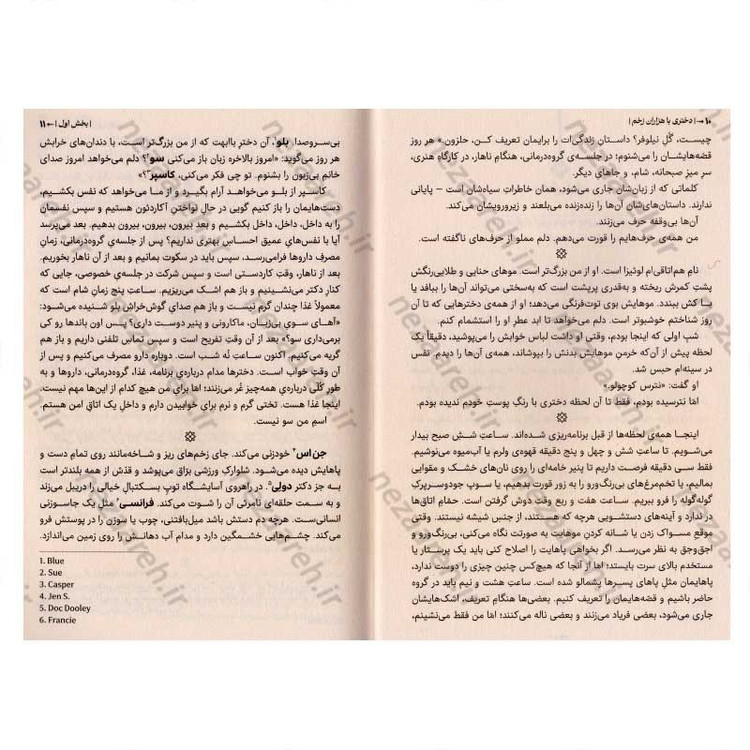 ۱۰ → | دختری با هزاران زخم |
چیست، گُلِ نیلوفر؟ داستان زندگی‌ات را برایمان تعریف کن، حلزون.» هر روز
قصه‌هایشان را می‌شنوم؛ در جلسه‌ی گروه‌درمانی، هنگام ناهار، در کارگاه هنری،
سرِ میزِ صبحانه، شام، و جاهای دیگر.
کلماتی که از زبان‌شان جاری می‌شود، همان خاطراتِ سیاه‌شان است – پایانی
ندارند. داستان‌های‌شان آن‌ها را زنده‌زنده می‌بلعند و زیرورویشان می‌کند.
آن‌ها بی‌وقفه حرف می‌زنند.
من همه‌ی حرف‌هایم را قورت می‌دهم. دلم مملو از حرف‌های ناگفته است.
نامِ هم‌اتاقی‌ام لوئیزا است. او از من بزرگ‌تر است. موهای حنایی و طلایی‌رنگش
پشتِ کمرش ریخته و به‌قدری پرپشت است که به‌سختی می‌تواند آن‌ها را ببافد یا
با کش ببندد. موهایش بوی توت‌فرنگی می‌دهد؛ او از همه‌ی دخترهایی که تا آن
روز شناختم خوشبوتر است. دلم می‌خواهد تا ابد عطرِ او را استشمام کنم.
شب اولی که اینجا بودم، وقتی او داشت لباس خوابش را می‌پوشید، دقیقاً یک
لحظه پیش از آن‌که خرمنِ موهایش بدنش را بپوشاند، همه‌ی آن‌ها را دیدم. نفس
در سینه‌ام حبس شد.
او گفت: «نترس کوچولو.»
امّا نترسیده بودم. فقط تا آن لحظه دختری با رنگِ پوستِ خودم ندیده بودم.
اینجا همه‌ی لحظه‌ها از قبل برنامه‌ریزی شده‌اند. ساعتِ شش صبح بیدار
می‌شویم. تا ساعت شش و چهل و پنج دقیقه قهوه‌ی ولرم یا آب‌میوه می‌نوشیم.
فقط سی دقیقه فرصت داریم تا پنیر خامه‌ای را روی نان‌های خشک و مقوایی
بمالیم، یا تخم‌مرغ‌های بی‌رنگ‌ورو را به زور قورت بدهیم، یا سوپ جودوسرپرک
گوله‌گوله را فرو ببریم. ساعت هفت و ربع وقت دوش گرفتن است. حمام اتاق‌ها
در ندارد و آینه‌های دستشویی هرچه که هستند، از جنسِ شیشه نیستند. وقتی
موقع مسواک زدن یا شانه کردن موهایت به صورتت نگاه می‌کنی، بی‌رنگ‌ورو و
اجق‌وجق به نظر می‌رسد. اگر بخواهی پاهایت را اصلاح کنی باید یک پرستار یا
مستخدم بالای سرت بایستد؛ امّا از آنجا که هیچ‌کس چنین چیزی را دوست ندارد،
پاهایمان مثل پاهای پسرها پشمالو شده است. ساعتِ هشت و نیم باید در گروه
حاضر باشیم و قصّه‌هایمان را تعریف کنیم. بعضی‌ها هنگام تعریف، اشک‌هایشان
جاری می‌شود، بعضی فریاد می‌زنند و بعضی ناله می‌کنند؛ امّا من فقط می‌نشینم،
| بخش اول | ← ۱۱
بی‌سروصدا. بلو¹، آن دخترِ باابهت که از من بزرگ‌تر است، با دندان‌های خرابش
هر روز می‌گوید: «امروز بالاخره زبان باز می‌کنی سو²؟ دلم می‌خواهد امروز صدای
خانم بی‌زبون را بشنوم. تو چی فکر می‌کنی، کاسپر³؟»
کاسپر از بلو می‌خواهد آرام بگیرد و از ما می‌خواهد که نفس بکشیم،
دست‌هایمان را باز کنیم گویی در حال نواختنِ آکاردئون هستیم و سپس نفسمان
را به داخل، داخل، داخل بکشیم و بعد بیرون، بیرون، بیرون بدهیم. بعد می‌پرسد
آیا با نفس‌های عمیق احساس بهتری نداریم؟ پس از جلسه‌ی گروه‌درمانی، زمانِ
مصرف داروها فرامی‌رسد، سپس باید در سکوت بمانیم و بعد از آن ناهار بخوریم.
بعد از ناهار، وقتِ کاردستی است و سپس شرکت در جلسه‌ی خصوصی، جایی که
کنارِ دکتر می‌نشینیم و باز هم اشک می‌ریزیم. ساعتِ پنج زمانِ شام است که
معمولاً غذا چندان گرم نیست و باز هم صدای گوش‌خراش بلو شنیده می‌شود:
«آهای سویِ بی‌زبان، ماکارونی و پنیر دوست داری؟ پس اون باندها رو کی
برمی‌داری سو؟» بعد از آن وقتِ تفریح است و سپس تماس تلفنی داریم و باز هم
گریه می‌کنیم. اکنون ساعتِ نُه شب است. دوباره دارو مصرف می‌کنیم و پس از
آن وقتِ خواب است. دخترها مدام درباره‌ی برنامه، غذا، گروه‌درمانی، داروها و به
طور کلّی درباره‌ی همه‌چیز غُر می‌زنند؛ امّا برای من هیچ کدام از این‌ها مهم نیست.
اینجا غذا هست. تختی گرم و نرم برای خوابیدن دارم و داخلِ یک اتاقِ امن هستم.
اسمِ من سو نیست.
جِن اس⁴ خودزنی می‌کند. جای زخم‌های ریز و شاخه‌مانند روی تمامِ دست و
پاهایش دیده می‌شود. شلوارکِ ورزشیِ برّاق می‌پوشد و قدّش از همه بلندتر است
به جز دکتر دولی⁵. در راهروی آسایشگاه توپِ بسکتبالِ خیالی را دریبل می‌زند
و به سمت حلقه‌ای نامرئی آن را شوت می‌کند. فرانسی⁶ مثل یک جاسوزنیِ
انسانی‌ست. هرچه دم دستش باشد میل‌بافتنی، چوب یا سوزن را در پوستش فرو
می‌کند. چشم‌هایی خشمگین دارد و مدام آب دهانش را روی زمین می‌اندازد.
1. Blue
2. Sue
3. Casper
4. Jen S.
5. Doc Dooley
6. Francie
nezaareh.ir